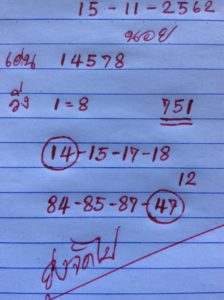 15-11-2562
นอย
เด่น 14578
วิ่ง 1=8 751
14-15-17-18
12
84-85-87-47